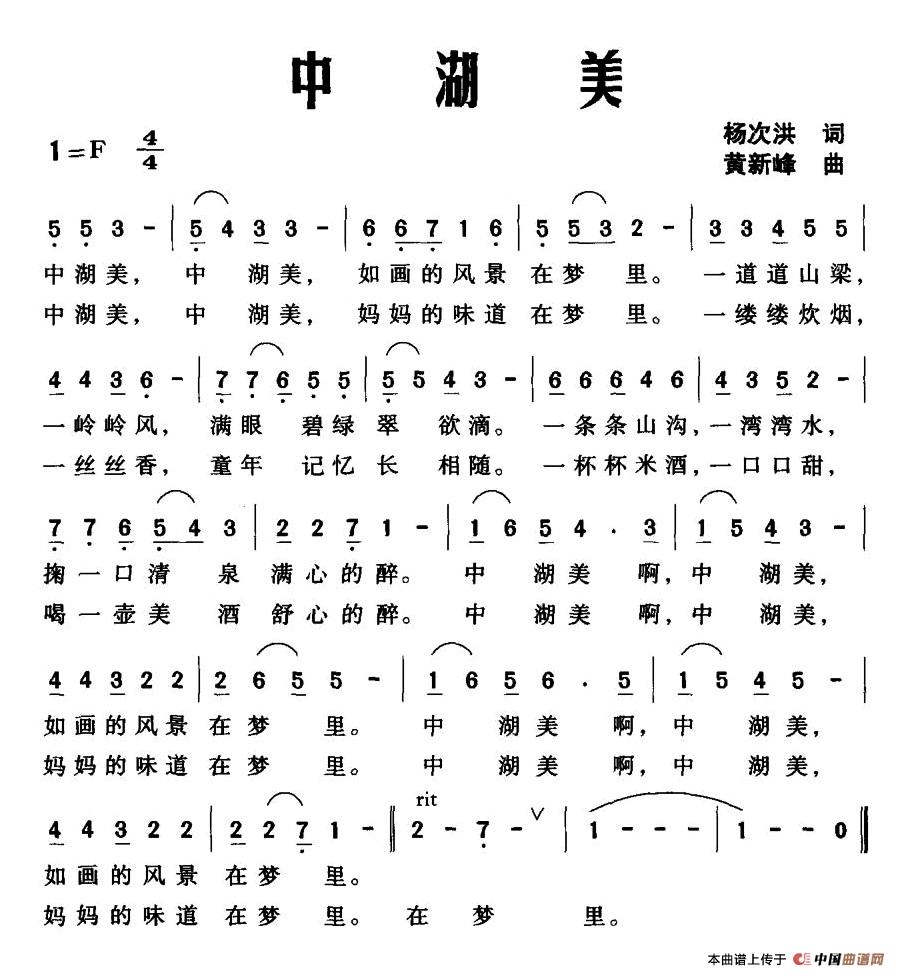 中湖美
1=F 4/4
杨次洪 词
黄新峰 曲
5 5 3 - | 5 4 3 3 - | 6 6 7 1 6 | 5 5 3 2 - | 3 3 4 5 5 |
中湖美，中湖美，如画的风景在梦里。一道道山梁，
中湖美，中湖美，妈妈的味道在梦里。一缕缕炊烟，
4 4 3 6 - | 7 7 6 5 5 | 5 5 4 3 - | 6 6 6 4 6 | 4 3 5 2 - |
一岭岭风，满眼碧绿翠欲滴。一条条山沟，一湾湾水，
一丝丝香，童年记忆长相随。一杯杯米酒，一口口甜，
7 7 6 5 4 3 | 2 2 7 1 - | 1 6 5 4 . 3 | 1 5 4 3 - |
掬一口清泉满心的醉。中湖美啊，中湖美，
喝一壶美酒舒心的醉。中湖美啊，中湖美，
4 4 3 2 2 | 2 6 5 5 - | 1 6 5 6 . 5 | 1 5 4 5 - |
如画的风景在梦里。中湖美啊，中湖美，
妈妈的味道在梦里。中湖美啊，中湖美，
rit
4 4 3 2 2 | 2 2 7 1 - ‖ 2 - 7 - ∨ | 1 - - - | 1 - - 0 ‖
如画的风景在梦里。
妈妈的味道在梦里。在梦里。
本曲谱上传于 中国曲谱网